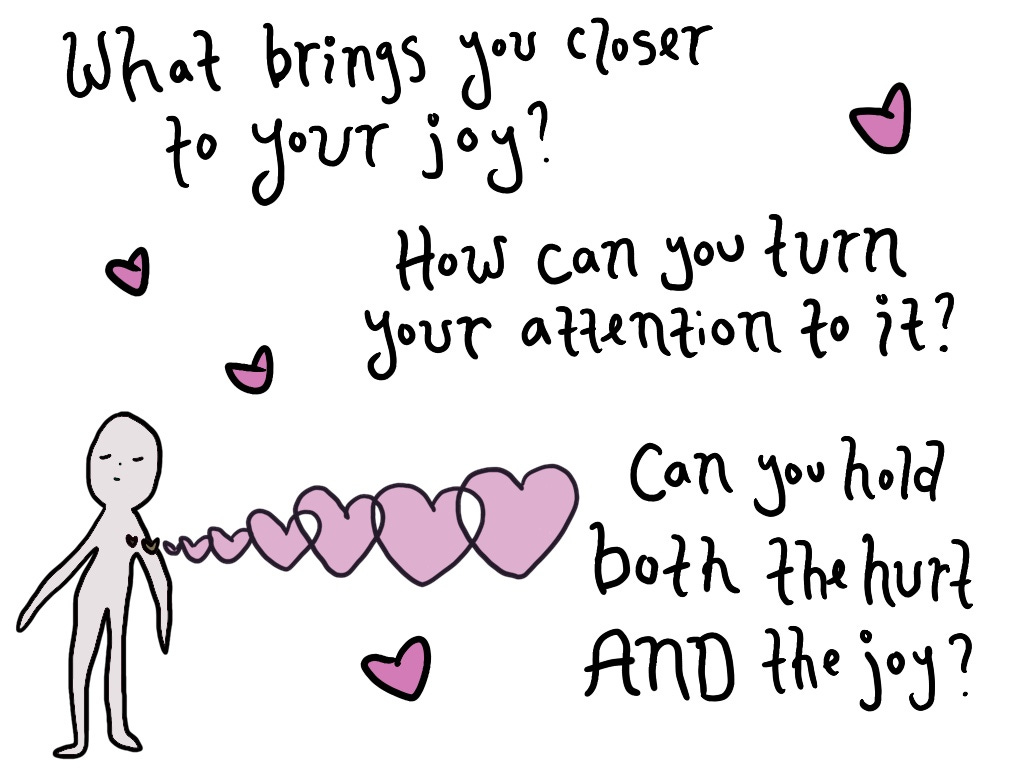 What brings you closer
to your joy?
How can you turn
your attention to it?
Can you hold
both the hurt
AND the joy?